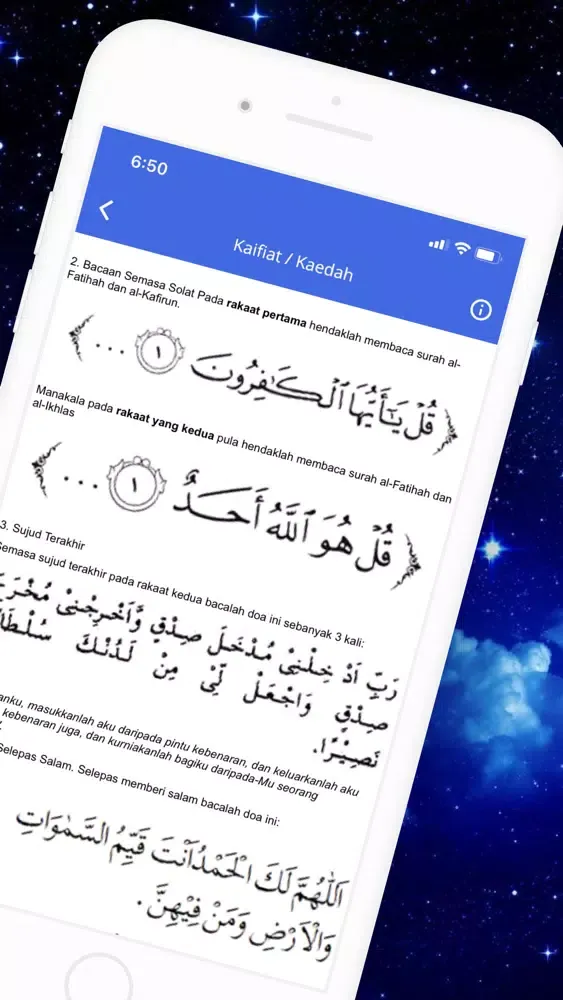 6:50
Kaifiat / Kaedah
2. Bacaan Semasa Solat Pada rakaat pertama hendaklah membaca surah al-
Fatihah dan al-Kafirun.
﴿قُلْ يَـٰٓأَيُّهَا ٱلْكَـٰفِرُونَ ١ ... ﴾
Manakala pada rakaat yang kedua pula hendaklah membaca surah al-Fatihah dan
al-Ikhlas
﴿قُلْ هُوَ ٱللَّهُ أَحَدٌ ١ ... ﴾
3. Sujud Terakhir
Semasa sujud terakhir pada rakaat kedua bacalah doa ini sebanyak 3 kali:
رَبِّ اَدْخِلْنِيْ مُدْخَلَ صِدْقٍ وَّاَخْرِجْنِيْ
صِدْقٍ وَاجْعَلْ لِّيْ مِنْ لَدُنْكَ
نَصِيْرًا.
masukkanlah aku daripada pintu kebenaran, dan keluarkanlah aku
kebenaran juga, dan kurniakanlah bagiku daripada-Mu seorang
Selepas Salam. Selepas memberi salam bacalah doa ini:
اَللّٰهُمَّ لَكَ الْحَمْدُ اَنْتَ قَيِّمُ السَّمٰوَاتِ
وَالْاَرْضِ وَمَنْ فِيْهِنَّ.